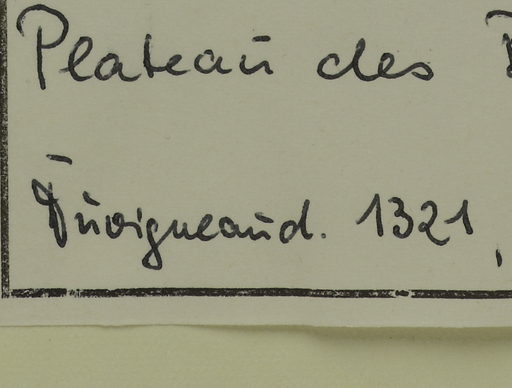 Plateau des
Duvigneaud. 1321,